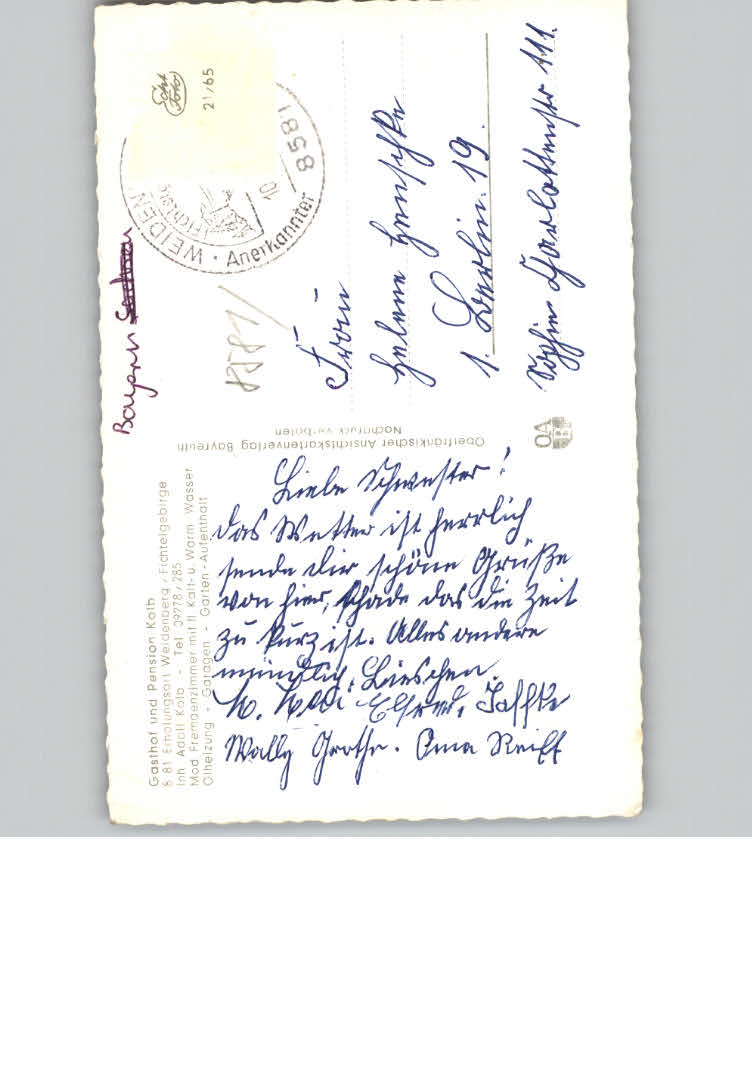 Gasthof und Pension Kolb
8581 Erholungsort Weidenberg / Fichtelgebirge
Inh Adolf Kolb - Tel 09278/285
Mod. Fremdenzimmer mit fl Kalt- u. Warm Wasser
Ölheizung - Garagen - Garten - Aufenthalt
Liebe Schwester!
das Wetter ist herrlich
sende dir schöne Grüße
von hier, schade das die Zeit
zu kurz ist. Alles andere
mündlich. Lieschen.
Elfried. Jaffke
Wally Grothe. Oma Reiff
Oberfränkischer Ansichtskartenverlag Bayreuth
Nachdruck verboten
OA
Bayern
Echt
Foto
21/65
WEIDEN
8581
10
Anerkannter
8581
Frau
Helene Henschke
1. Berlin. 19.
Sophie Charlottenstr 111.